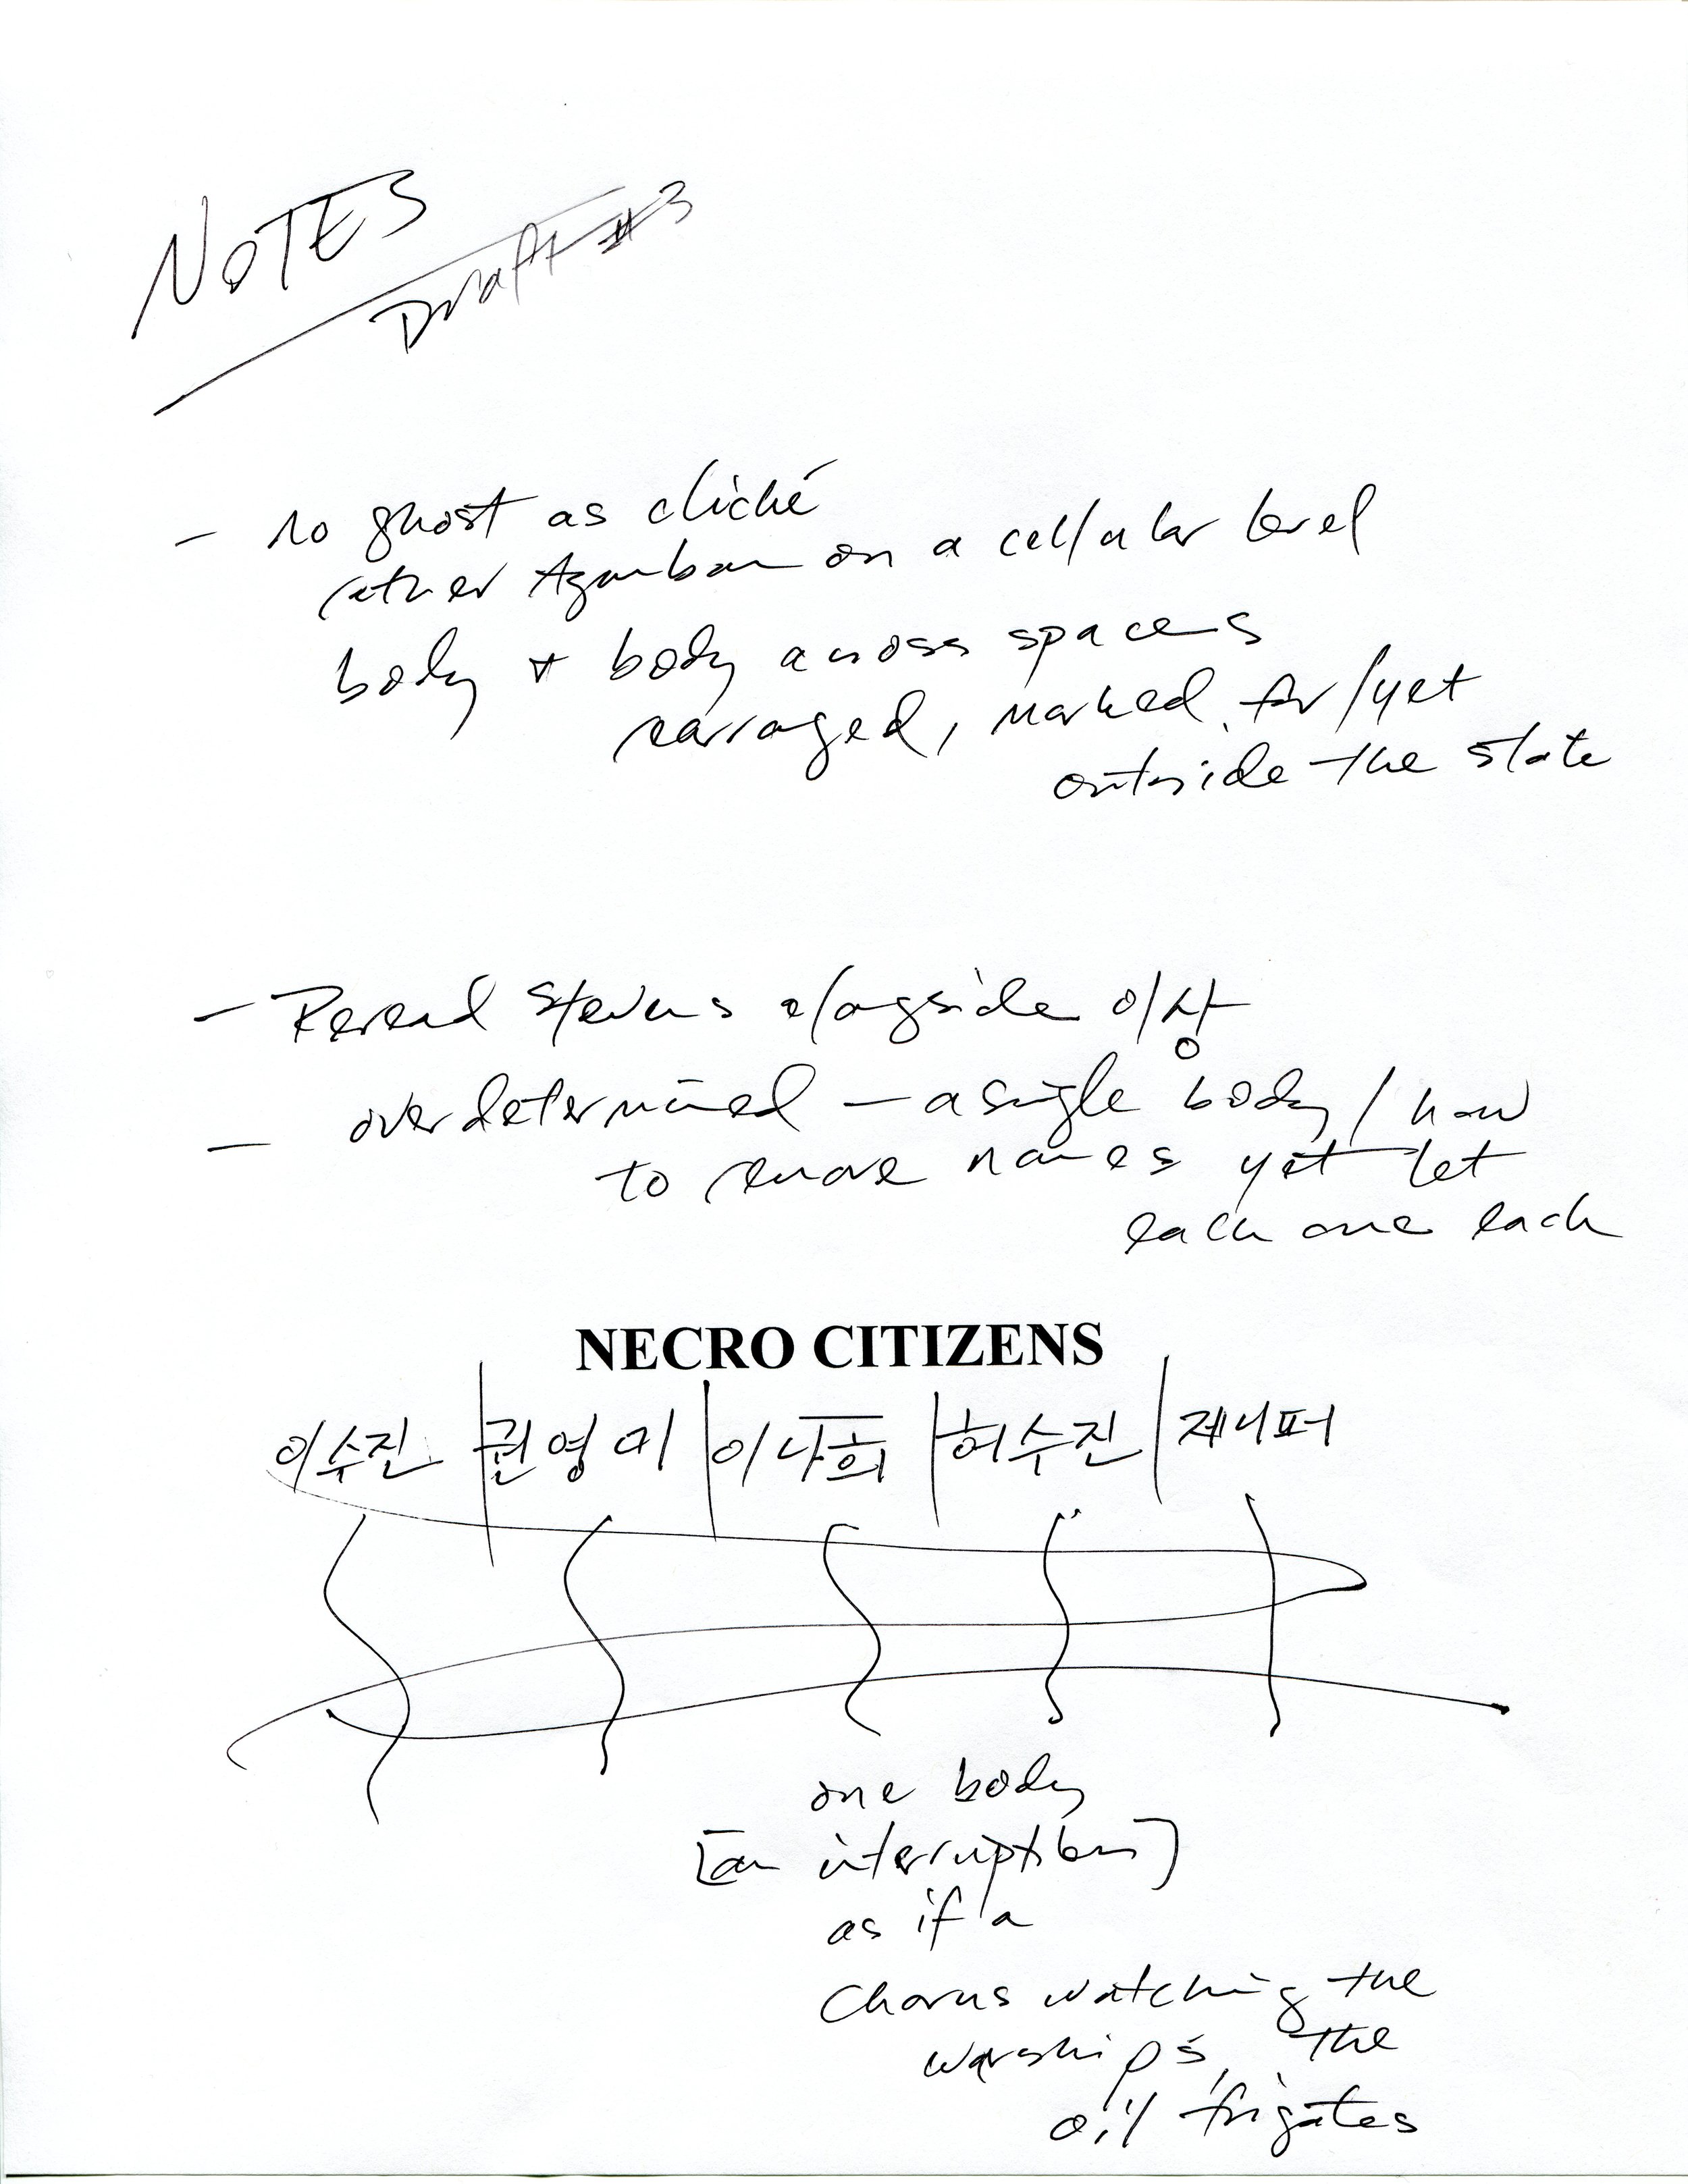 NOTES
Draft #3
- no ghost as cliché
rather Agamben on a cellular level
body + body across spaces
rearranged, marked for/yet
outside the state
- Reread Stevens alongside 이상
- overdetermined — a single body / how
to remove names yet let
each one each
NECRO CITIZENS
이수진 | 권영미 | 이나희 | 허수진 | 제니퍼
one body
[an interruption]
as if a
chorus watching the
warships, the
oil frigates